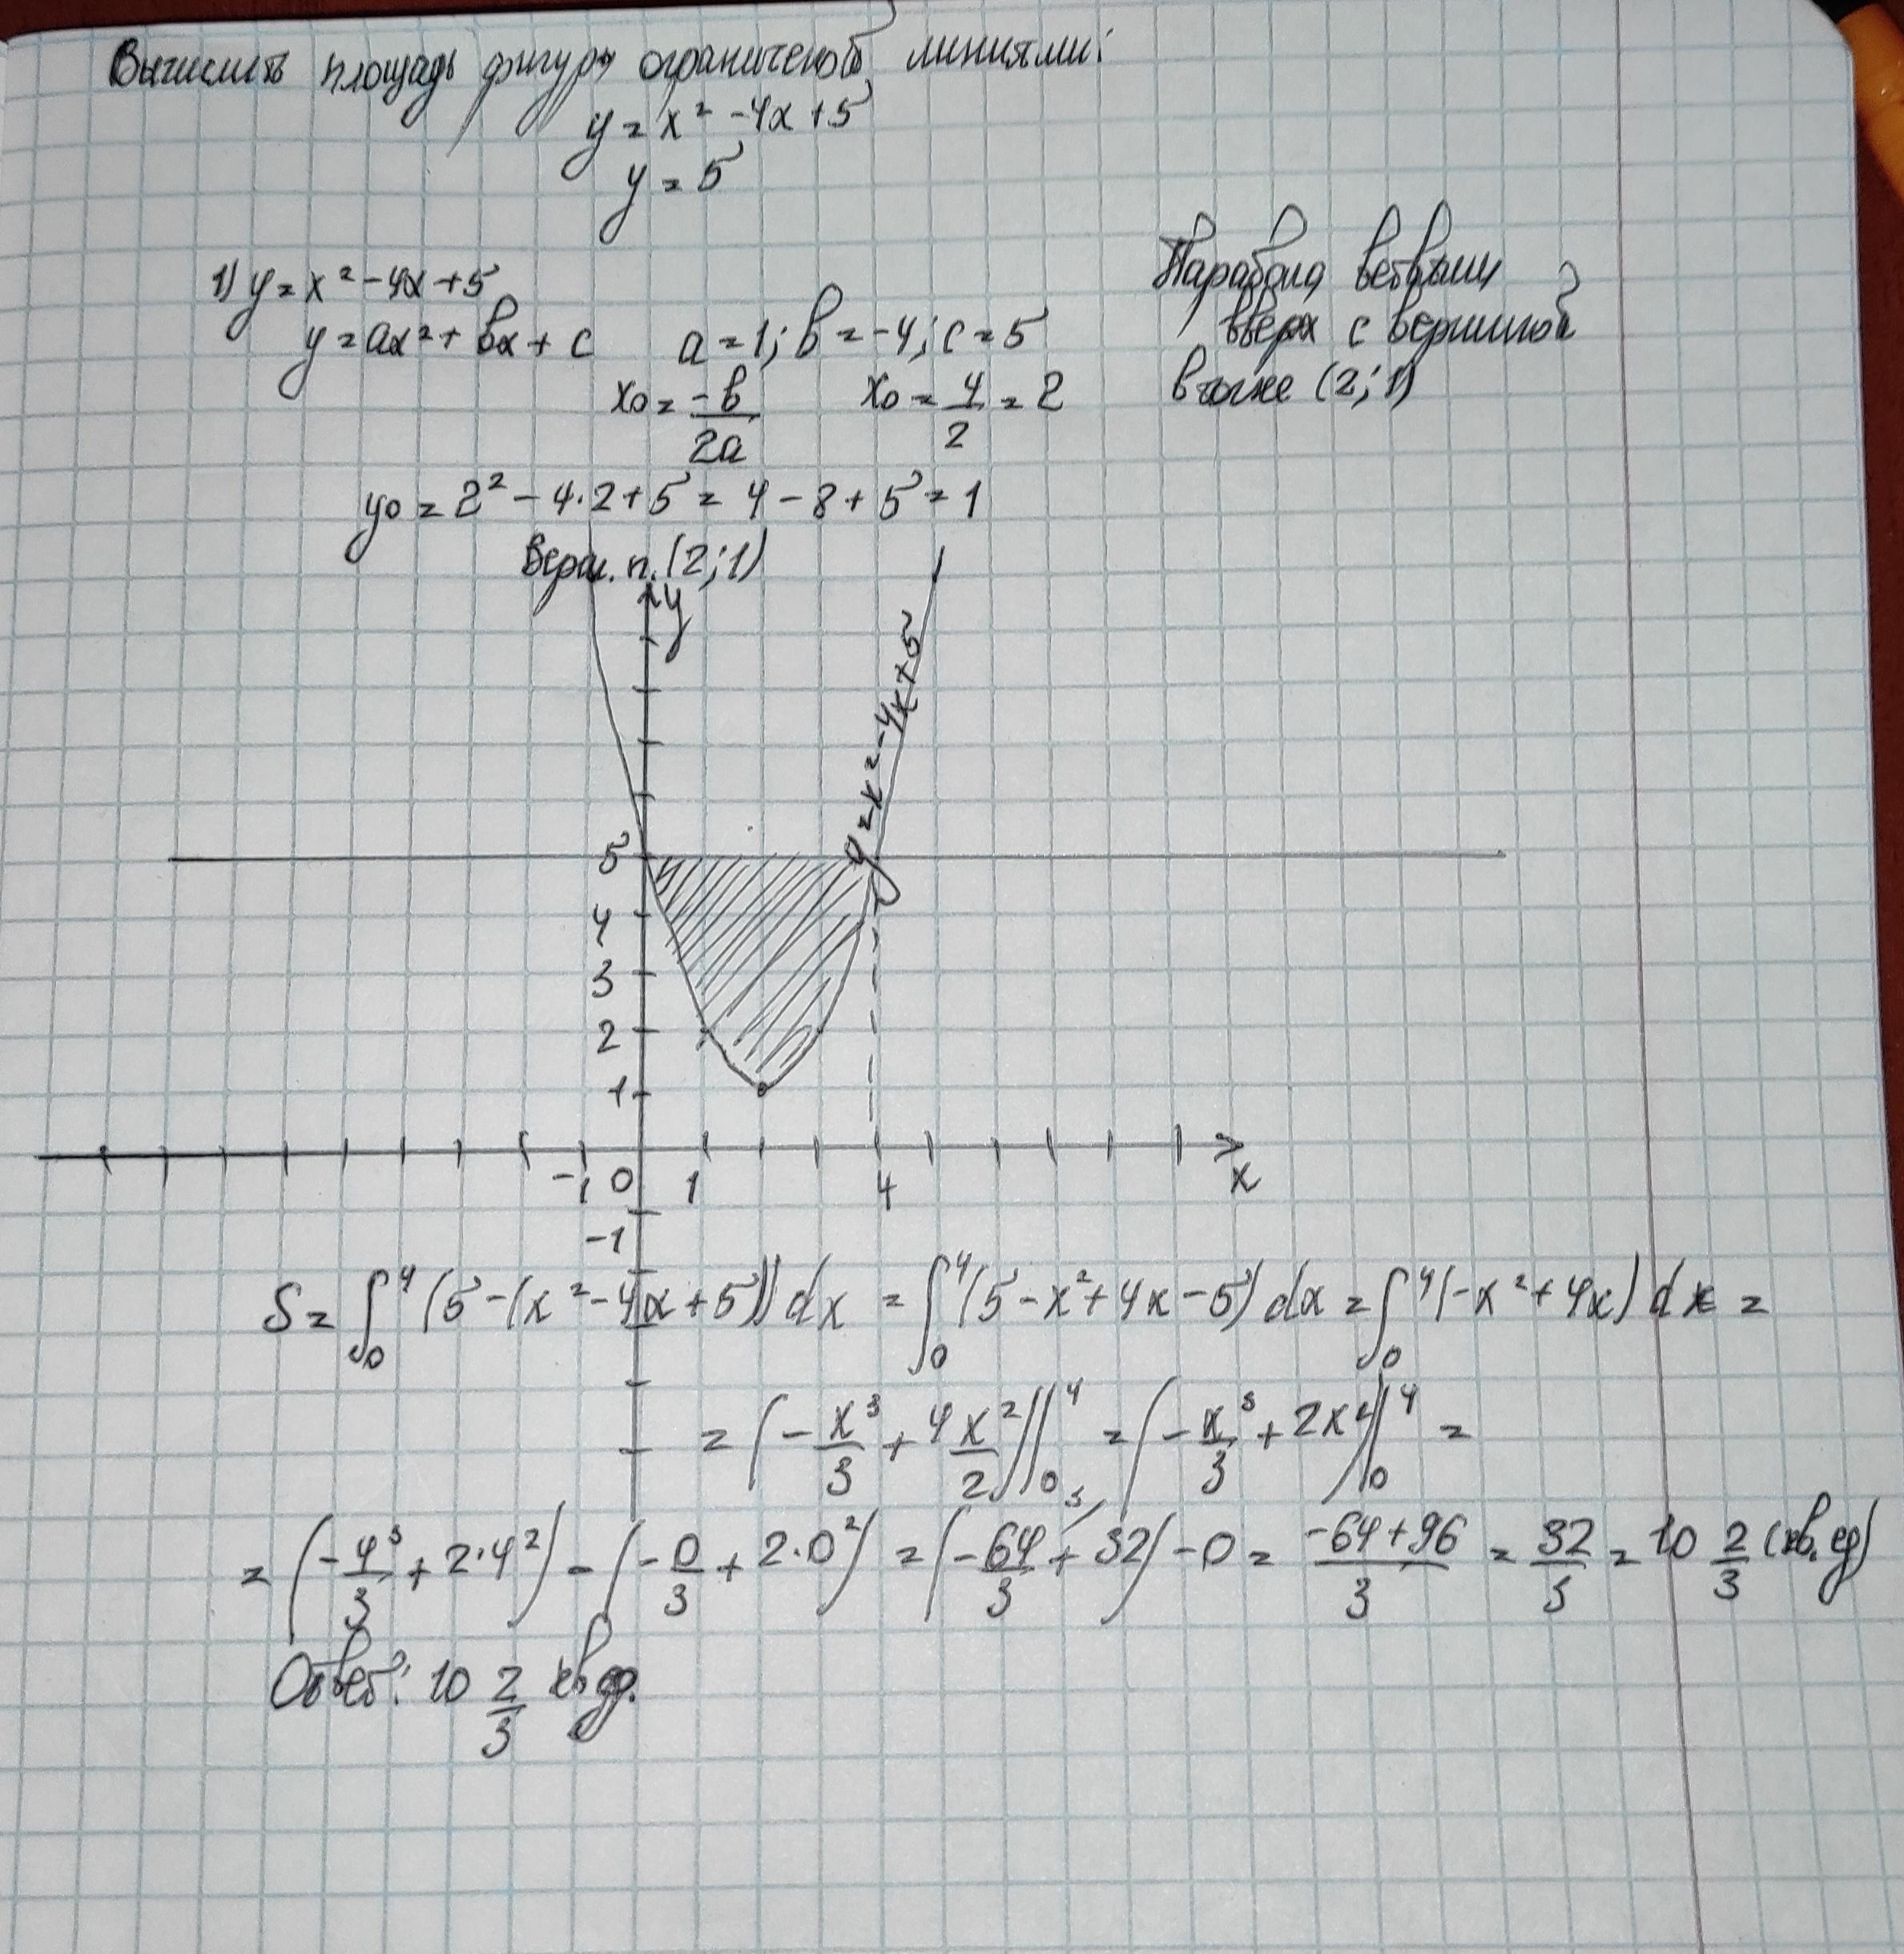 Вычислить площадь фигуры ограниченой линиями:
y = x² - 4x + 5
y = 5
1) y = x² - 4x + 5
y = ax² + bx + c a = 1; b = -4; c = 5
x₀ = -b/2a x₀ = 4/2 = 2
Парабола ветвями
вверх с вершиной
в точке (2; 1)
y₀ = 2² - 4·2 + 5 = 4 - 8 + 5 = 1
Верш. п. (2; 1)
y
y = x² - 4x + 5
5
4
3
2
1
-1 0 1 4 x
-1
S = ∫₀⁴ (5 - (x² - 4x + 5)) dx = ∫₀⁴ (5 - x² + 4x - 5) dx = ∫₀⁴ (-x² + 4x) dx =
= (-x³/3 + 4x²/2)|₀⁴ = (-x³/3 + 2x²)|₀⁴ =
= (-4³/3 + 2·4²) - (-0/3 + 2·0²) = (-64/3 + 32^{3/}) - 0 = (-64 + 96)/3 = 32/3 = 10 2/3 (кв. ед)
Ответ: 10 2/3 кв ед.